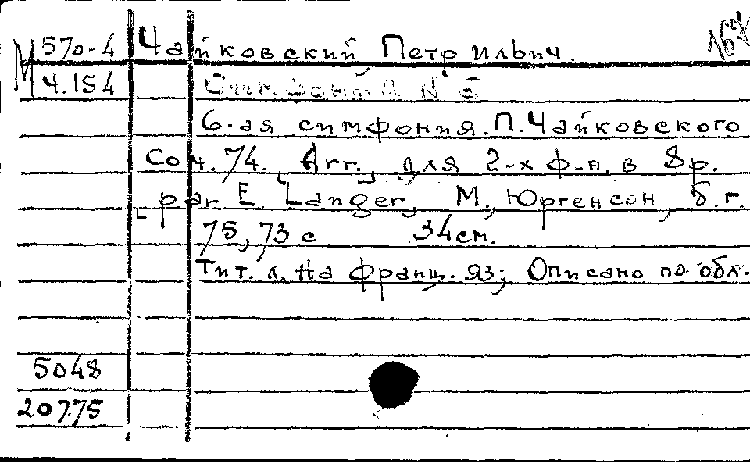 М 570-4 Чайковский Петр Ильич.
Ч.154 Симфония № 6
6-ая симфония П. Чайковского
Соч. 74. Arr., для 2-х ф-п. в 8 р.
par E. Langer, М., Юргенсон, б.г.
75, 73 с 34 см.
Тит. л. на франц. яз; Описано по обл.
5048
20775